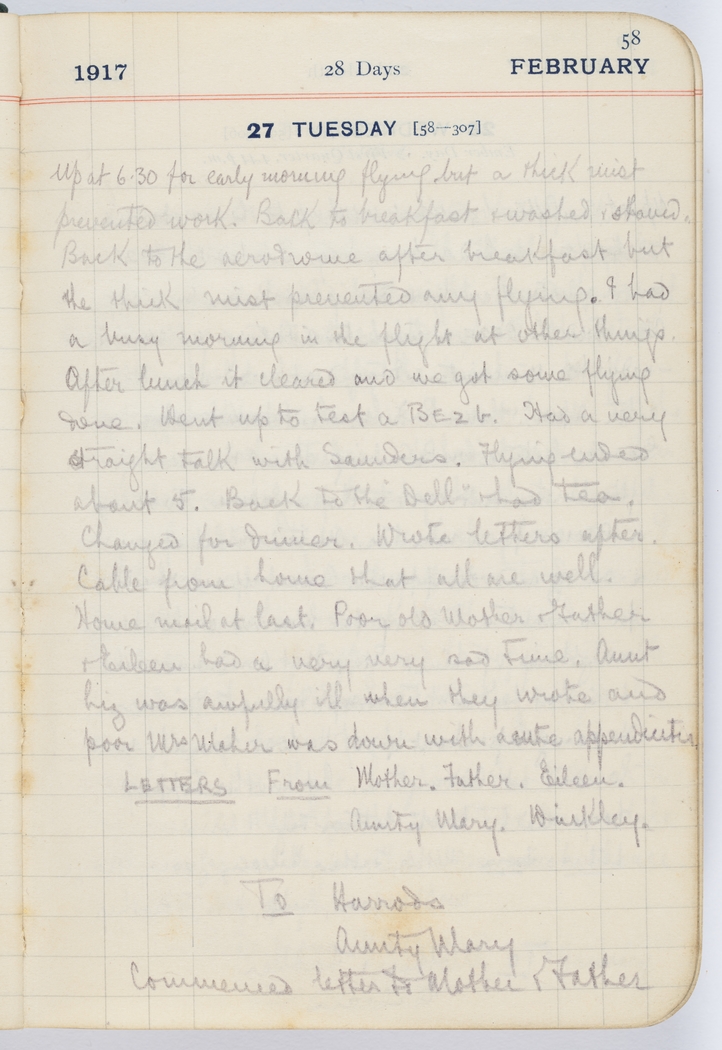 58
1917 28 Days FEBRUARY
27 TUESDAY [58—307]
Up at 6.30 for early morning flying but a thick mist
prevented work. Back to breakfast & washed & shaved.
Back to the aerodrome after breakfast but
the thick mist prevented any flying. I had
a busy morning in the flight at other things.
After lunch it cleared and we got some flying
done. Went up to test a BE2b. Had a very
straight talk with Saunders. Flying ended
about 5. Back to the "Dell" & had tea.
Changed for dinner. Wrote letters after.
Cable from home that all are well.
Home mail at last. Poor old Mother & Father
& Eileen had a very very sad time. Aunt
Liz was awfully ill when they wrote and
poor Mrs Maher was down with acute appendicitis
LETTERS From Mother. Father. Eileen.
Aunty Mary. Winkley.
To Harrods
Aunty Mary
Commenced letter to Mother & Father